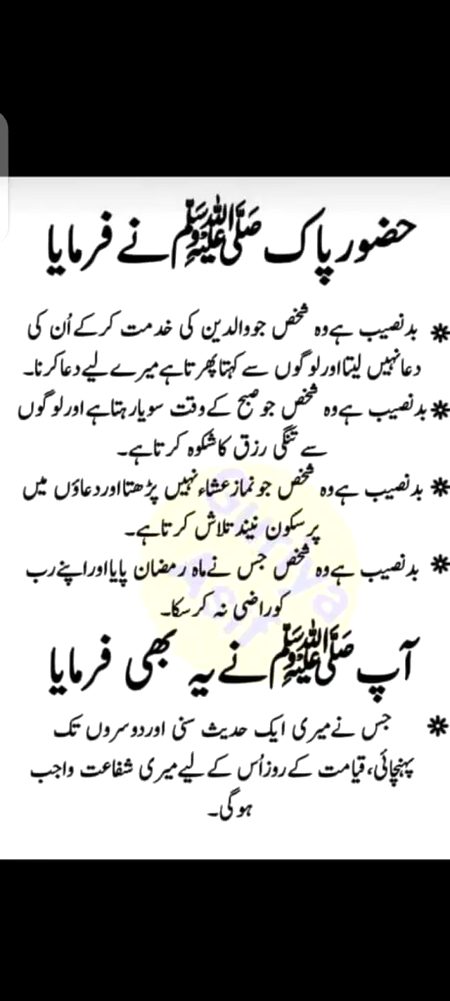 حضور پاک ﷺ نے فرمایا
✷ بدنصیب ہے وہ شخص جو والدین کی خدمت کرکے اُن کی
دعا نہیں لیتا اور لوگوں سے کہتا پھرتا ہے میرے لیے دعا کرنا۔
✷ بدنصیب ہے وہ شخص جو صبح کے وقت سویا رہتا ہے اور لوگوں
سے تنگی رزق کا شکوہ کرتا ہے۔
✷ بدنصیب ہے وہ شخص جو نماز عشاء نہیں پڑھتا اور دعاؤں میں
پرسکون نیند تلاش کرتا ہے۔
✷ بدنصیب ہے وہ شخص جس نے ماہ رمضان پایا اور اپنے رب
کو راضی نہ کر سکا۔
Guriya
Asif
آپ ﷺ نے یہ بھی فرمایا
✷ جس نے میری ایک حدیث سنی اور دوسروں تک
پہنچائی، قیامت کے روز اُس کے لیے میری شفاعت واجب
ہوگی۔